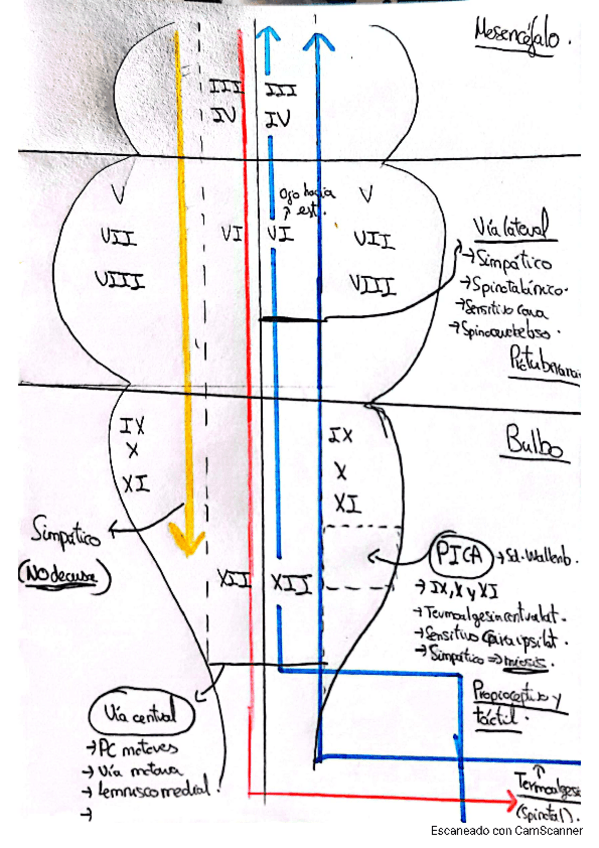 Mesencéfalo.
III III
IV IV
Ojo hacia
est.
V V
VII VI VI VII
VIII VIII
Vía lateral
→Simpático
→Spinotalámico.
→Sensitivo cara
→Spinocerebeloso.
Protuberancia
Bulbo
IX IX
X X
XI XI
Simpático
(NO decusa)
PICA → Sd. Wallenb.
→ IX, X y XI
→Termoalgesia contralat.
→Sensitivo cara ipsilat.
→Simpático => miosis.
XII XII
Propioceptivo y
táctil.
Vía central
→PC motores
→Vía motora
→Lemnisco medial.
→
Termoalgesia
(Spinotal).
Escaneado con CamScanner